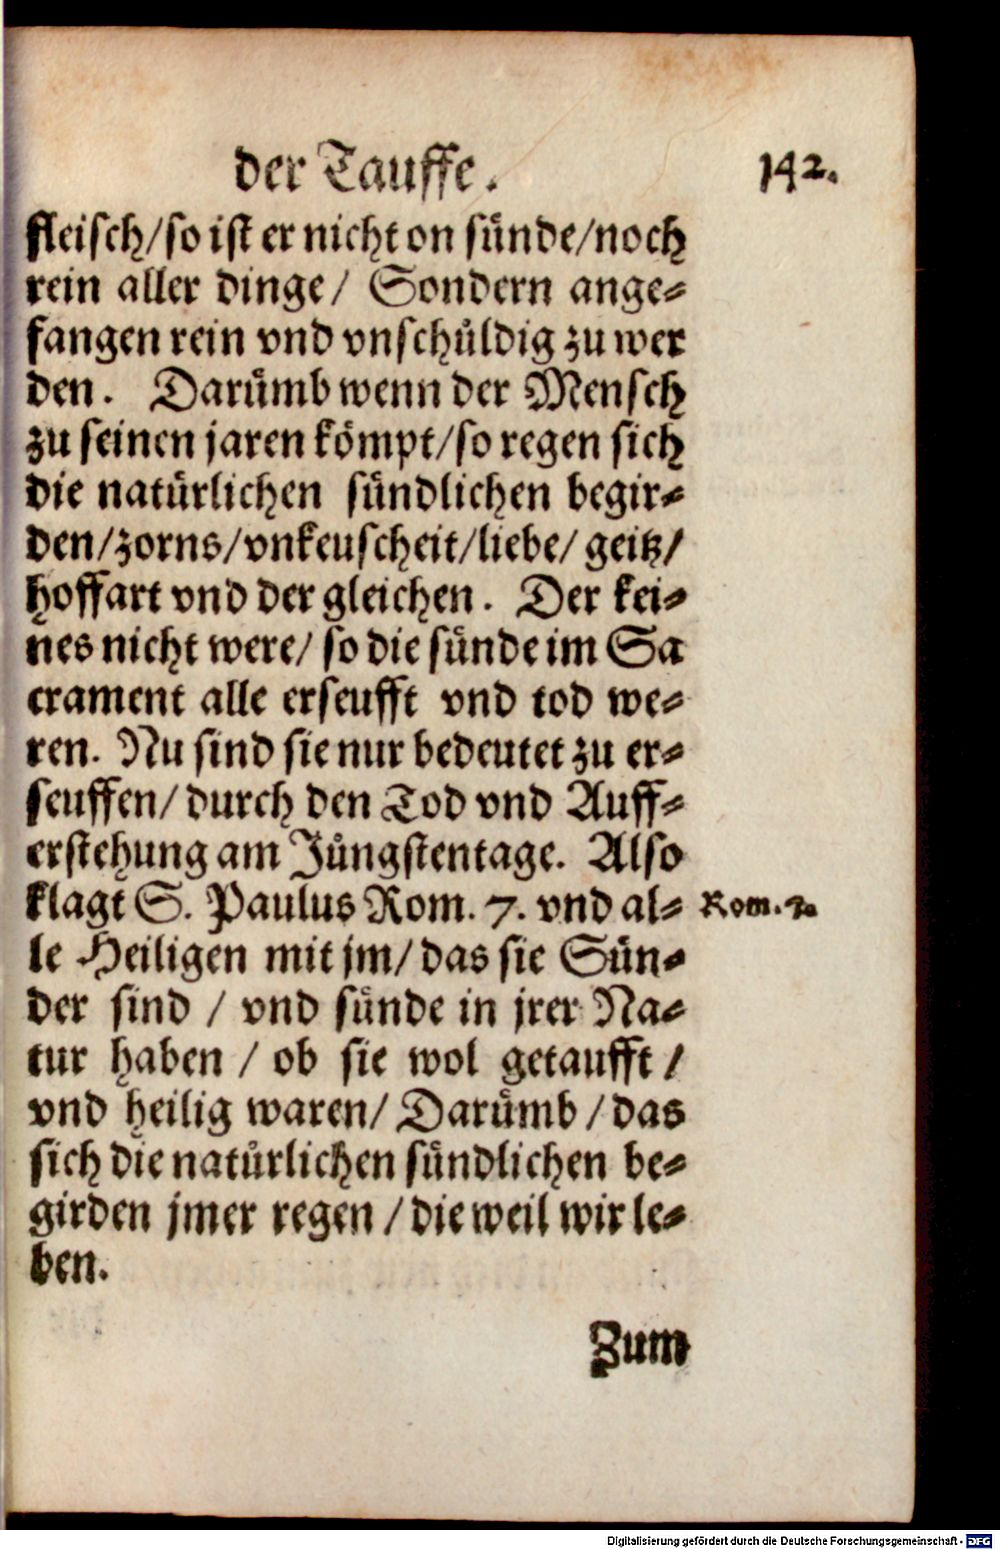 der Tauffe. 142.
fleisch/so ist er nicht on sünde/noch
rein aller dinge/ Sondern ange⸗
fangen rein vnd vnschüldig zu wer
den. Darümb wenn der Mensch
zu seinen jaren kömpt/so regen sich
die natürlichen sündlichen begir⸗
den/zorns/vnkeuscheit/liebe/ geitz/
hoffart vnd der gleichen. Der kei⸗
nes nicht were/ so die sünde im Sa
crament alle erseufft vnd tod we⸗
ren. Nu sind sie nur bedeutet zu er⸗
seuffen/ durch den Tod vnd Auff⸗
erstehung am Jüngstentage. Also
klagt S. Paulus Rom. 7. vnd al⸗ Rom. 7.
le Heiligen mit jm/ das sie Sün⸗
der sind / vnd sünde in jrer Na⸗
tur haben / ob sie wol getaufft /
vnd heilig waren/ Darümb / das
sich die natürlichen sündlichen be⸗
girden jmer regen / die weil wir le⸗
ben.
Zum
Digitalisierung gefördert durch die Deutsche Forschungsgemeinschaft - DFG